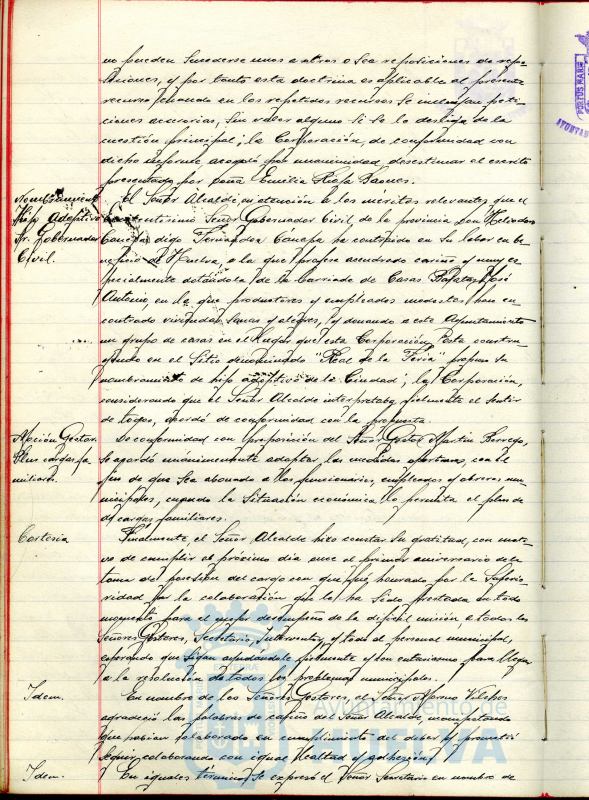 no pueden sucederse unos a otros o sea reposiciones de repo-
siciones, y por tanto esta doctrina es aplicable al presente
recurso, cuando en los repetidos recursos se incluyan peti-
ciones accesorias, sin valor alguno si se lo desliga de la
cuestión principal; la Corporación, de conformidad con
dicho informe acogió por unanimidad, desestimar el escrito
presentado por Doña Emilia
Nombramiento
Hijo Adoptivo
Sr. Gobernador
Civil.
El Señor Alcalde, en atención a los méritos relevantes que el
Excelentísimo Señor Gobernador Civil de la provincia Don
Canepa digo Fernández Canepa ha contraido en su labor en be-
neficio de Huelva, a la que profesa acendrado cariño y muy es-
pecialmente dotándola de la Barriada de Casas Baratas José
Antonio, en la que productores y empleados modestos han en-
contrado viviendas sanas y alegres, y donando a este Ayuntamiento
un grupo de casas en el lugar que esta Corporación está constru-
yendo en el sitio denominado "Real de la Feria" propone su
nombramiento de hijo adoptivo de la Ciudad; la Corporación,
considerando que el Señor Alcalde interpretaba fielmente el sentir
de todos, acordó de conformidad con la propuesta.
Moción Gestor
Plus cargas fa-
miliares.
De conformidad con proposición del Señor Gestor Martín Berrego,
se acordó unánimemente adoptar las medidas oportunas, con el
fin de que sea abonado a los funcionarios, empleados y obreros mu-
nicipales, cuando la situación económica lo permita el plus de
cargas familiares.
Cortesía
Finalmente, el Señor Alcalde hizo constar su gratitud, con moti-
vo de cumplir el próximo día once el primer aniversario de la
toma de posesión del cargo con que fué honrado por la Superio-
ridad por la colaboración que le ha sido prestada en todo
momento para el mejor desempeño de la difícil misión a todos los
Señores Gestores, Secretario, Interventor, y todo el personal municipal,
esperando que sigan ayudándole fielmente y con entusiasmo para llegar
a la resolución de todos los problemas municipales.
Idem.
En nombre de los Señores Gestores, el Señor Moreno Vilches
agradeció las palabras de cariño del Señor Alcalde, manifestando
que habían colaborado en cumplimiento del deber y prometió
seguir colaborando con igual lealtad y adhesión.
Idem.
En iguales términos se expresó el Señor Secretario en nombre de
Ayuntamiento de
HUELVA
PORTUS MARIS
AYUNTAM